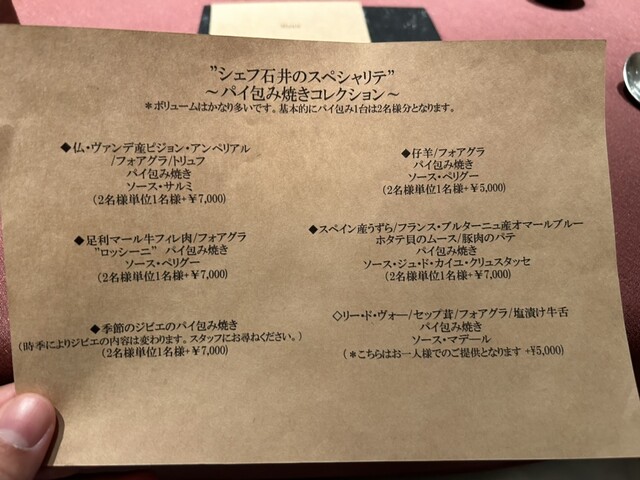 ”シェフ石井のスペシャリテ”
～パイ包み焼きコレクション～
＊ボリュームはかなり多いです。基本的にパイ包み1台は2名様分となります。
◆仏・ヴァンデ産ピジョン・アンペリアル
/フォアグラ/トリュフ
パイ包み焼き
ソース・サルミ
(2名様単位1名様+￥7,000)
◆仔羊/フォアグラ
パイ包み焼き
ソース・ペリグー
(2名様単位1名様+￥5,000)
◆足利マール牛フィレ肉/フォアグラ
“ロッシーニ” パイ包み焼き
ソース・ペリグー
(2名様単位1名様+￥7,000)
◆スペイン産うずら/フランス・ブルターニュ産オマールブルー
ホタテ貝のムース/豚肉のパテ
パイ包み焼き
ソース・ジュ・ド・カイユ・クリュスタッセ
(2名様単位1名様+￥7,000)
◆季節のジビエのパイ包み焼き
(時季によりジビエの内容は変わります。スタッフにお尋ねください。)
(2名様単位1名様+￥7,000)
◇リー・ド・ヴォー/セップ茸/フォアグラ/塩漬け牛舌
パイ包み焼き
ソース・マデール
(＊こちらはお一人様でのご提供となります +¥5,000)